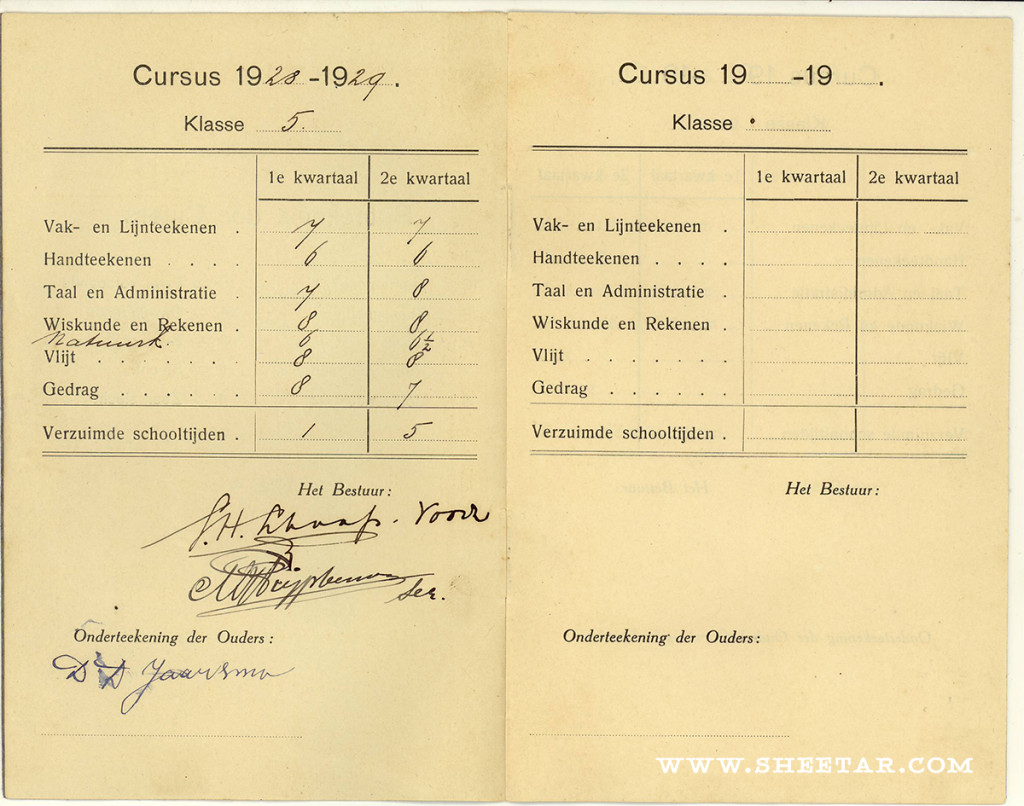 Cursus 1928-1929.
Klasse 5.
1e kwartaal 2e kwartaal
Vak- en Lijnteekenen . 7 7
Handteekenen . . . . 6 6
Taal en Administratie . 7 8
Wiskunde en Rekenen . 8 8
Natuurk. 6 6½
Vlijt . . . . . . 8 8
Gedrag . . . . . . 8 7
Verzuimde schooltijden . 1 5
Het Bestuur:
S.H. Schaap. Voorz
Secr.
Onderteekening der Ouders:
D. D Jaarsma
Cursus 19 -19 .
Klasse .
1e kwartaal 2e kwartaal
Vak- en Lijnteekenen .
Handteekenen . . . .
Taal en Administratie .
Wiskunde en Rekenen .
Vlijt . . . . . .
Gedrag . . . . . .
Verzuimde schooltijden .
Het Bestuur:
Onderteekening der Ouders:
WWW.SHEETAR.COM